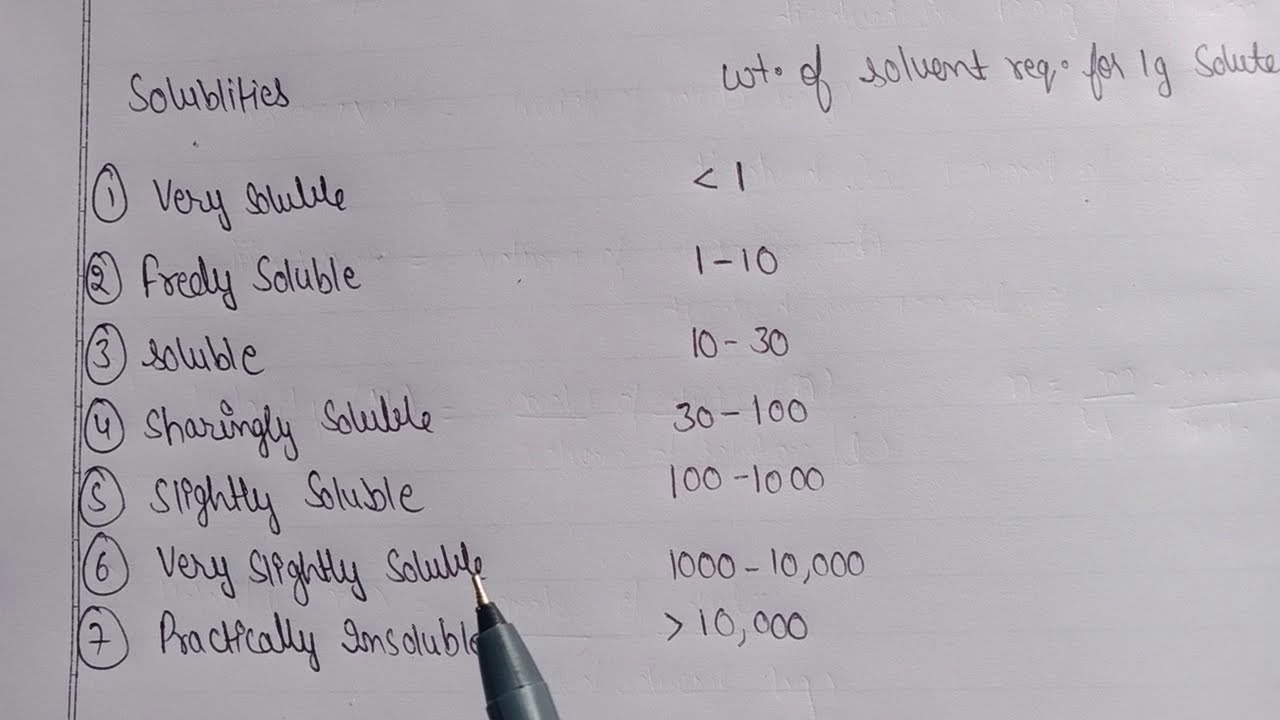 Solublities wt. of solvent req. for 1g Solute
① Very Soluble < 1
② freely Soluble 1-10
③ Soluble 10-30
④ Sharingly Soluble 30-100
⑤ Slightly Soluble 100-1000
⑥ Very Slightly Soluble 1000-10,000
⑦ Practically Insoluble > 10,000